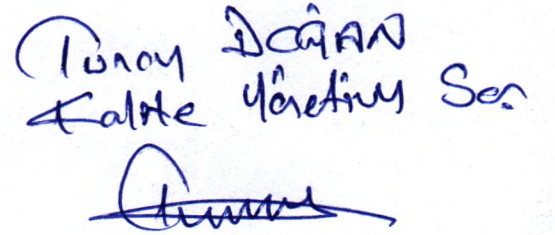 Turay DOĞAN
Kalite Yönetim So.